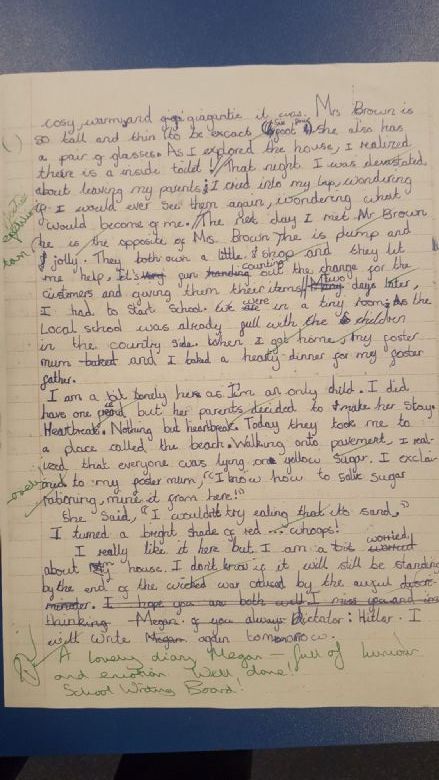 cosy, warm, and gigiantic it was. Mrs Brown is
so tall and thin (to be excact six foot) she also has
a pair of glasses. As I explored the house, I realized
there is a inside toilet! That night I was devastated
about leaving my parents; I cried into my lap, wondering
if I would ever see them again, wondering what
would become of me. The next day I met Mr Brown
he is the opposite of Mrs. Brown he is plump and
jolly. They both own a little shop and they let
me help. It's fun counting out the change for the
customers and giving them their items. Two days later,
I had to start school. We were in a tiny room; As the
Local school was already full with the children
in the country side. When I got home, my foster
mum and I baked a hearty dinner for my foster
father.
I am a bit lonely here as I'm an only child. I did
have one friend, but her parents decided to make her stay.
Heartbreak. Nothing but heartbreak. Today they took me to
a place called the beach. Walking onto pavement, I real-
ised that everyone was lying on yellow sugar. I exclai-
med to my foster mum, "I know how to solve sugar
rationing, mine it from here!"
She Said, "I wouldn't try eating that its sand,"
I turned a bright shade of red ... whoops!
I really like it here but I am a bit worried
about my house. I don't know if it will still be standing
by the end of the wicked war caused by the awful
minister. I hope you are both well. I miss you and
thinking of you always Dictator: Hitler. I
will write again tomorrow. - Megan.
A lovely diary Megan - full of humour
and emotion. Well done!
School Writing Board!